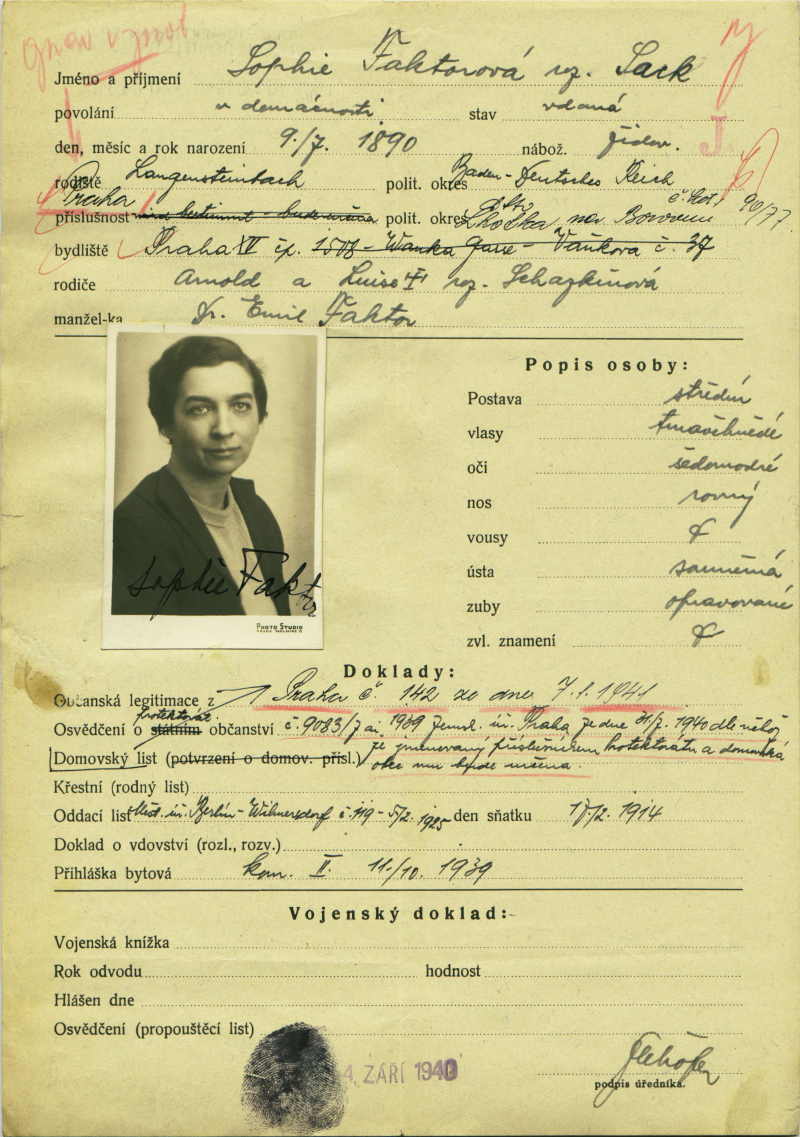 Jméno a příjmení Sophie Faktorová roz. Sack
povolání v domácnosti stav vdaná
den, měsíc a rok narození 9./7. 1890 nábož. židov.
J.
rodiště Langensteinbach polit. okres Baden - Deutsches Reich
Praha
příslušnost polit. okres Lhotka na
bydliště Praha XII čp. 1503 - Wanka Gasse - Vaňkova č. 37
rodiče Arnold a Luise roz. Schazkinová
manžel-ka Dr. Emil Faktor
Popis osoby:
Postava střední
vlasy tmavěhnědé
oči šedomodré
nos rovný
vousy
ústa souměrná
zuby opravované
zvl. znamení
Sophie Faktor
PHOTO STUDIO
Doklady:
Občanská legitimace z Praha č. 142 ze dne 7.1.1941
protektorát.
Osvědčení o státním občanství č. 9083/7 ai 1939 Zemsk. úř. Praha ze dne 31/7. 1940 dle něhož
Domovský list (potvrzení o domov. přísl.) je jmenovaný příslušníkem protektorátu a domovská
obec mu bude určena.
Křestní (rodný list)
Oddací list Berlin - Wilmersdorf č. 119 - 5/2. 1925 den sňatku 1914
Doklad o vdovství (rozl., rozv.)
Přihláška bytová kom. II. 11./10. 1939
Vojenský doklad:
Vojenská knížka
Rok odvodu hodnost
Hlášen dne
Osvědčení (propouštěcí list)
4. ZÁŘÍ 1940
podpis úředníka.